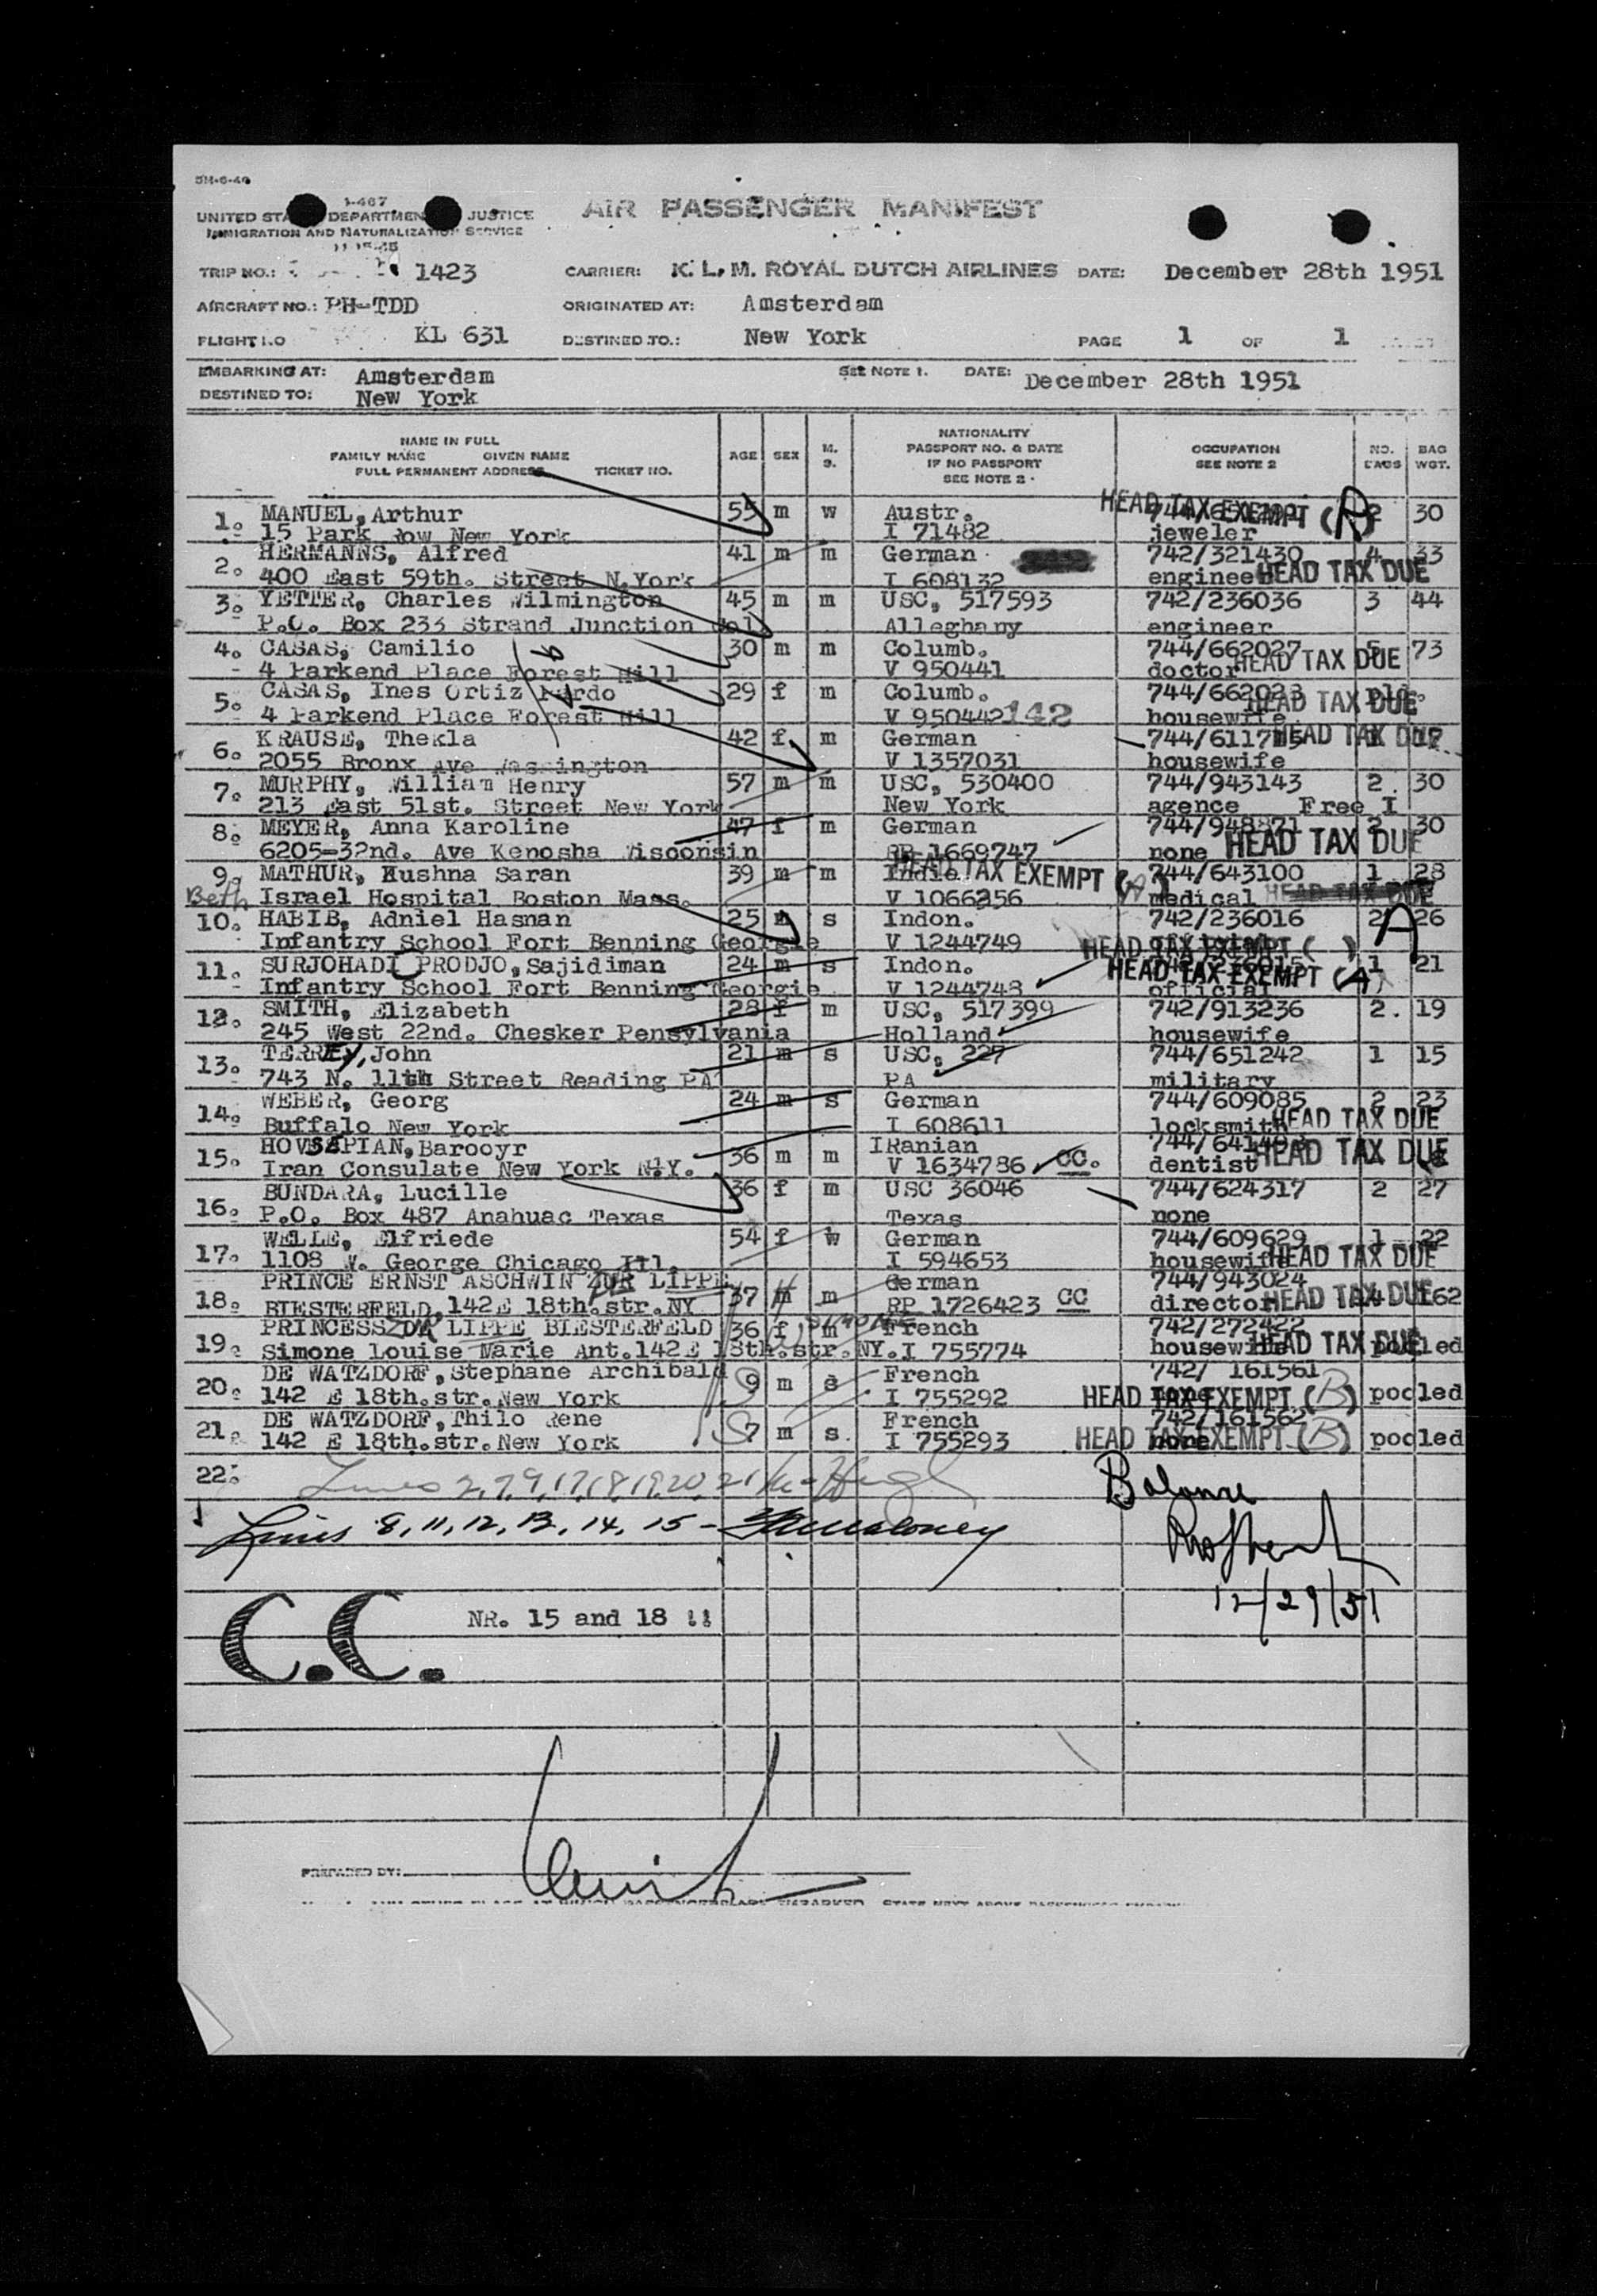 I-467
UNITED STA DEPARTMEN JUSTICE
IMMIGRATION AND NATURALIZATION SERVICE
AIR PASSENGER MANIFEST
TRIP NO.: 1423 CARRIER: K. L. M. ROYAL DUTCH AIRLINES DATE: December 28th 1951
AIRCRAFT NO.: PH-TDD ORIGINATED AT: Amsterdam
FLIGHT NO KL 631 DESTINED TO.: New York PAGE 1 OF 1
EMBARKING AT: Amsterdam SEE NOTE 1. DATE: December 28th 1951
DESTINED TO: New York
NAME IN FULL
FAMILY NAME GIVEN NAME
FULL PERMANENT ADDRESS TICKET NO.
AGE SEX M. S.
NATIONALITY
PASSPORT NO. & DATE
IF NO PASSPORT
SEE NOTE 2
OCCUPATION
SEE NOTE 2
NO. BAGS BAG WGT.
1. MANUEL, Arthur 55 m w Austr. HEAD TAX EXEMPT (A) 2 30
15 Park Row New York I 71482 jeweler
2. HERMANNS, Alfred 41 m m German 742/321430 4 33
400 East 59th. Street N.York I 608132 engineer HEAD TAX DUE
3. YETTER, Charles Wilmington 45 m m USC, 517593 742/236036 3 44
P.O. Box 233 Strand Junction Col. Alleghany engineer
4. CASAS, Camilio 30 m m Columb. 744/662027 5 73
4 Parkend Place Forest Hill V 950441 doctor HEAD TAX DUE
5. CASAS, Ines Ortiz Pardo 29 f m Columb. 744/662028
4 Parkend Place Forest Hill V 950442 142 housewife HEAD TAX DUE
6. KRAUSE, Thekla 42 f m German 744/611715 HEAD TAX DUE
2055 Bronx Ave Wassington V 1357031 housewife
7. MURPHY, William Henry 57 m m USC, 530400 744/943143 2. 30
213 East 51st. Street New York New York agence Free I
8. MEYER, Anna Karoline 47 f m German 744/948871 2 30
6205-32nd. Ave Kenosha Wisconsin RP 1669747 none HEAD TAX DUE
9. MATHUR, Kushna Saran 39 m m India HEAD TAX EXEMPT (A) 744/643100 1 28
Beth Israel Hospital Boston Mass. V 1066256 medical HEAD TAX DUE
10. HABIB, Adniel Hasnan 25 m s Indon. 742/236016 2 A 26
Infantry School Fort Benning Georgie V 1244749 official HEAD TAX EXEMPT ( )
11. SURJOHADI PRODJO, Sajidiman 24 m s Indon. 1 21
Infantry School Fort Benning Georgie V 1244748 official HEAD TAX EXEMPT (A)
12. SMITH, Elizabeth 28 f m USC, 517399 742/913236 2. 19
245 West 22nd. Chesker Pensylvania Holland housewife
13. TERREY, John 21 m s USC, 227 744/651242 1 15
743 N. 11th Street Reading PA PA military
14. WEBER, Georg 24 m s German 744/609085 2 23
Buffalo New York I 608611 locksmith HEAD TAX DUE
15. HOVSEPIAN, Barooyr 36 m m IRanian
Iran Consulate New York N.Y. V 1634786 CC. dentist HEAD TAX DUE
16. BUNDARA, Lucille 36 f m USC 36046 744/624317 2 27
P.O. Box 487 Anahuac Texas Texas none
17. WELLE, Elfriede 54 f w German 744/609629 1 22
1108 W. George Chicago Ill. I 594653 housewife HEAD TAX DUE
18. PRINCE ERNST ASCHWIN ZUR LIPPE 37 m m German 744/943024
BIESTERFELD, 142E 18th.str.NY RP 1726423 CC director HEAD TAX DUE 162
19. PRINCESS ZUR LIPPE BIESTERFELD 36 f m SIMONE French 742/272422
Simone Louise Marie Ant.142E 18th.str.NY. I 755774 housewife HEAD TAX DUE pooled
20. DE WATZDORF, Stephane Archibald 9 m s French 742/ 161561
142 E 18th.str.New York I 755292 none HEAD TAX EXEMPT (B) pooled
21. DE WATZDORF, Thilo Rene 7 m s. French 742/161562
142 E 18th.str.New York I 755293 none HEAD TAX EXEMPT (B) pooled
22. Lines 2, 7, 9, 17, 18, 19, 20, 21
Balance
Lines 8, 11, 12, 13, 14, 15 -
12/29/51
C.C. NR. 15 and 18 !!
PREPARED BY: